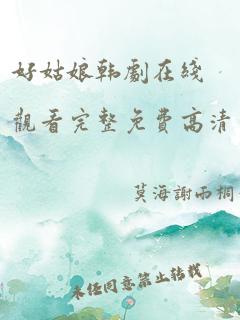 好姑娘韩劇在綫
觀看完整免費高清
莫海謝雨桐
未经同意禁止转载